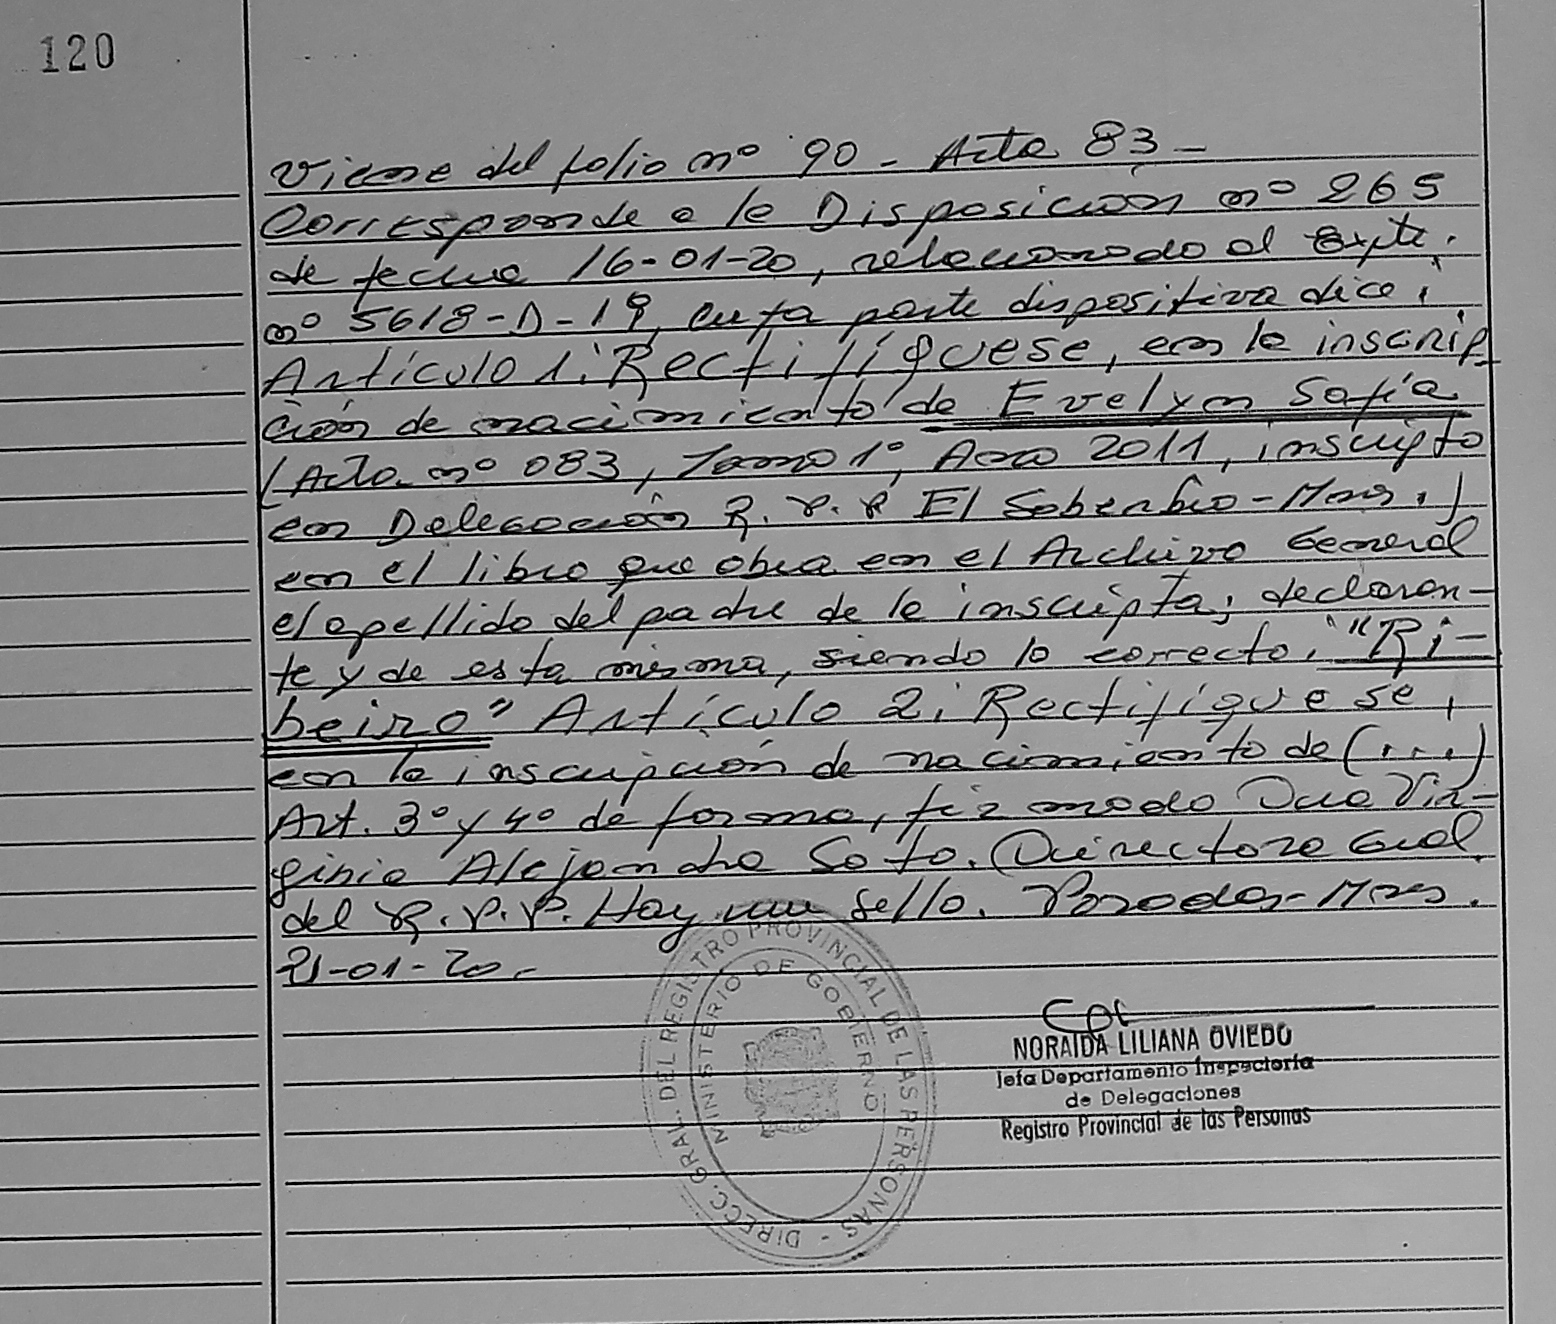 120
Viene del folio nº 90 - Acta 83 -
Corresponde a la Disposición nº 265
de fecha 16-01-20, relacionado al Expte.
nº 5618-D-19, cuya parte dispositiva dice:
Artículo 1: Rectifíquese, en la inscrip
ción de nacimiento de Evelyn Sofía
(Acta nº 083, Tomo 1º, Año 2011, inscripto
en Delegación R.P.P El Soberbio - Mnes.)
en el libro que obra en el Archivo General
el apellido del padre de la inscripta, declaran-
te y de esta misma, siendo lo correcto: "Ri-
beiro" Artículo 2: Rectifíquese,
en la inscripción de nacimiento de (...)
Art. 3º y 4º de forma, firmado Dra Vir-
ginia Alejandra Soto. Directora Gral
del R.P.P. Hay un sello. Posadas - Mnes.
21-01-20.-
NORAIDA LILIANA OVIEDO
Jefa Departamento Inspectoría
de Delegaciones
Registro Provincial de las Personas
DIRECC. GRAL. DEL REGISTRO PROVINCIAL DE LAS PERSONAS -
MINISTERIO DE GOBIERNO